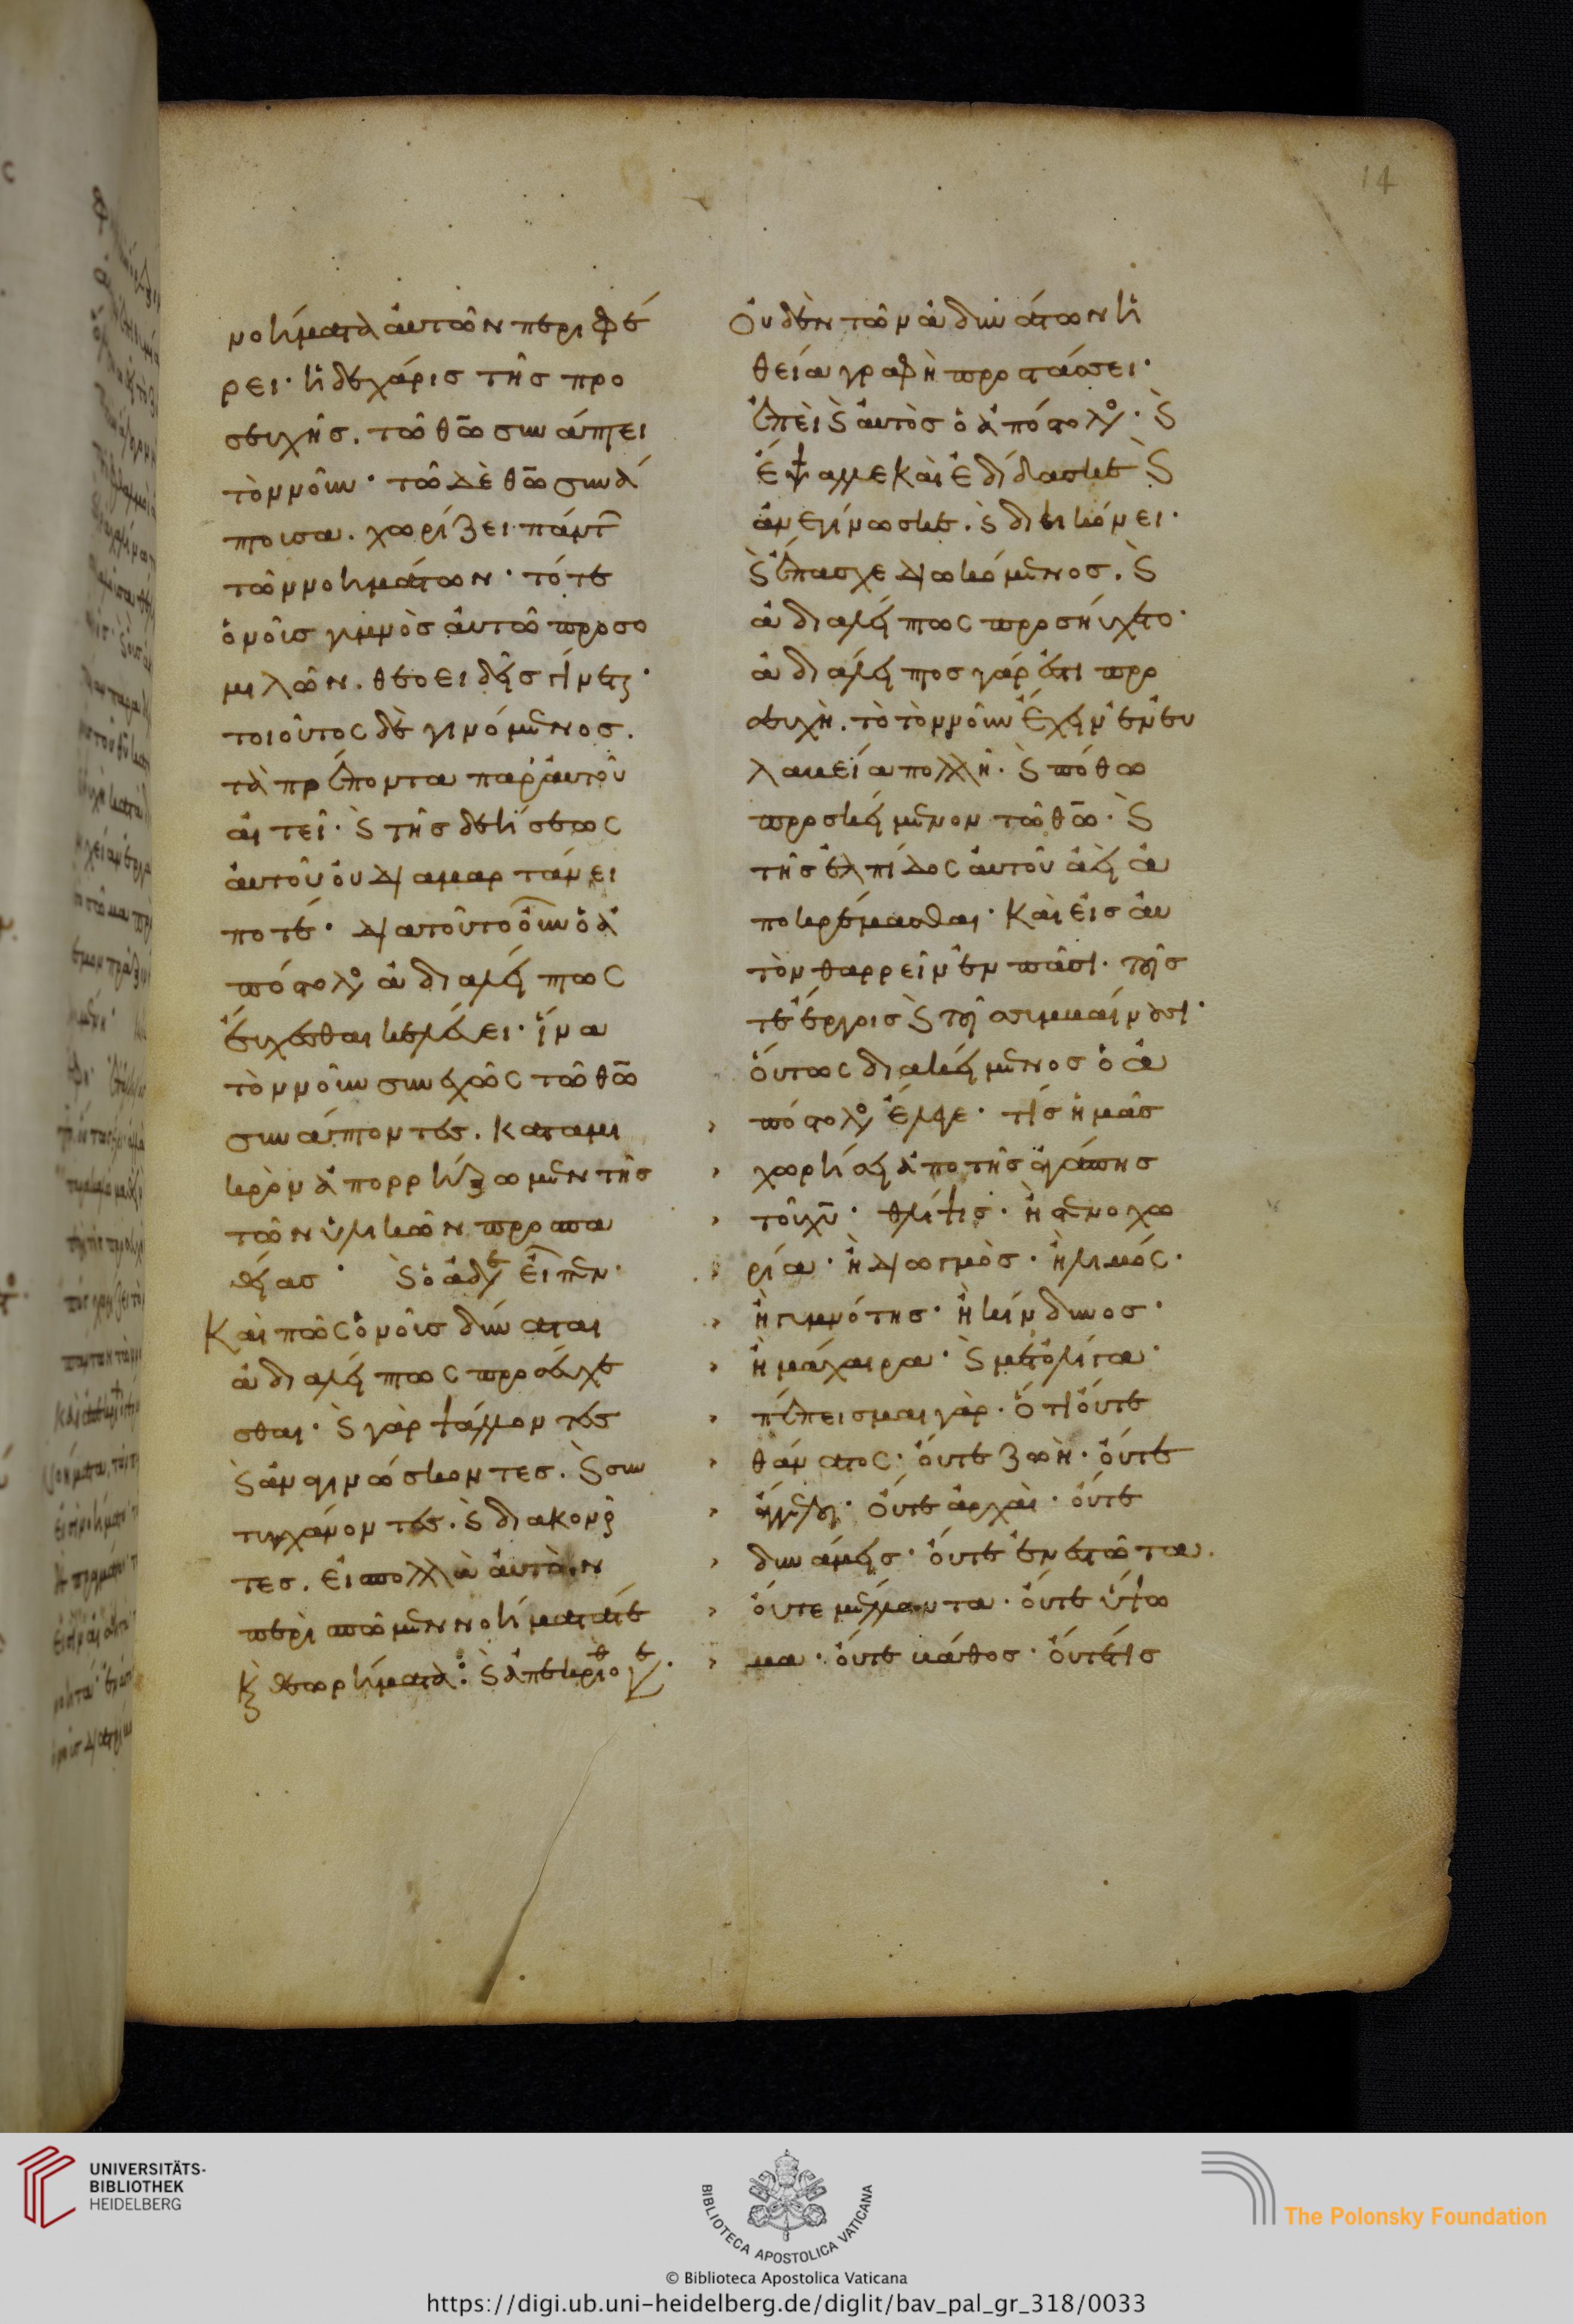 νοήματα αὐτῶν περιφέ
ρει· ἡ δὲ χάρις τῆς προ
σευχῆς. τῶ θω̅ συνάπτει
τὸν νοῦν· τῶ δὲ θω̅ συνά
πτουσα. χωρίζει πάντ
τῶν νοημάτων· τότε
ὁ νοῦς γυμνὸς αὐτῶ προσο
μιλῶν. θεοειδὴς γίνεται·
τοιοῦτος δὲ γινόμενος.
τὰ πρέποντα παρ' αὐτοῦ
αἰτεῖ· ϗ τῆς δεήσεως
αὐτοῦ οὐ διαμαρτάνει
ποτέ· διατοῦτο οὖν ὁ ἀ
πόστολος ἀδιαλείπτως
εὔχεσθαι κελεύει· ἵνα
τὸν νοῦν συνεχῶς τῶ θω̅
συνάπτοντες. κατὰ μι
κρὸν ἀπορρήξωμεν τῆς
τῶν ὑλικῶν προσπα
θείας· ϗ ὁ ἀδε εἶπεν·
Καὶ πῶς ὁ νοῦς δύναται
ἀδιαλείπτως προσεύχε
σθαι· ϗ γὰρ ψάλλοντες
ϗ ἀναγινώσκοντες. ϗ συν
τυγχάνοντες. ϗ διακονοῦν
τες. εἰς πολλὰ αὐτὸν
περισπῶμεν νοήματά τε
ϗ θεωρήματα: ϗ ἀπεκρίθ ὁ γε·
14
Οὐδὲν τῶν ἀδυνάτων ἡ
θεία γραφὴ προστάσσει·
ἐπεὶ ϗ αὐτὸς ὁ ἀπόστολος· ϗ
ἔψαλλε καὶ ἐδίδασκε ϗ
ἀνεγίνωσκε. ϗ διηκόνει·
ϗ ἔπασχε διωκόμενος. ϗ
ἀδιαλείπτως προσηύχετο·
ἀδιάλειπτος γάρ ἐστι προ
σευχὴ. τὸ τὸν νοῦν ἔχειν ἐν εὐ
λαβεία πολλῆ· ϗ πόθω
προσκείμενον τῶ θω̅· ϗ
τῆς ἐλπίδος αὐτοῦ ἀεὶ ἀ
ποκρέμασθαι· καὶ εἰς αὐ
τὸν θαρρεῖν ἐν πᾶσι· τοῖς
τε ἔργοις ϗ τοῖς συμβαίνουσι·
οὕτως διακείμενος ὁ ἀ
› πόστολος ἔλεγε· τίς ἡμᾶς
› χωρήσει ἀπὸ τῆς ἀγάπης
› τοῦ χυ̅· θλίψις· ἢ στενοχω
› ρία· ἢ διωγμὸς· ἢ λιμός·
› ἢ γυμνότης· ἢ κίνδυνος·
› ἢ μάχαιρα· ϗ μετολίγα·
› πέπεισμαι γὰρ· ὅτι οὔτε
› θάνατος· οὔτε ζωὴ· οὔτε
› ἄγγελοι· οὔτε ἀρχαὶ· οὔτε
› δυνάμεις· οὔτε ἐνεστῶτα.
› οὔτε μέλλοντα· οὔτε ὕψω
› μα· οὔτε βάθος· οὔτέ τις
UNIVERSITÄTS-
BIBLIOTHEK
HEIDELBERG
BIBLIOTECA APOSTOLICA VATICANA
The Polonsky Foundation
© Biblioteca Apostolica Vaticana
https://digi.ub.uni-heidelberg.de/diglit/bav_pal_gr_318/0033